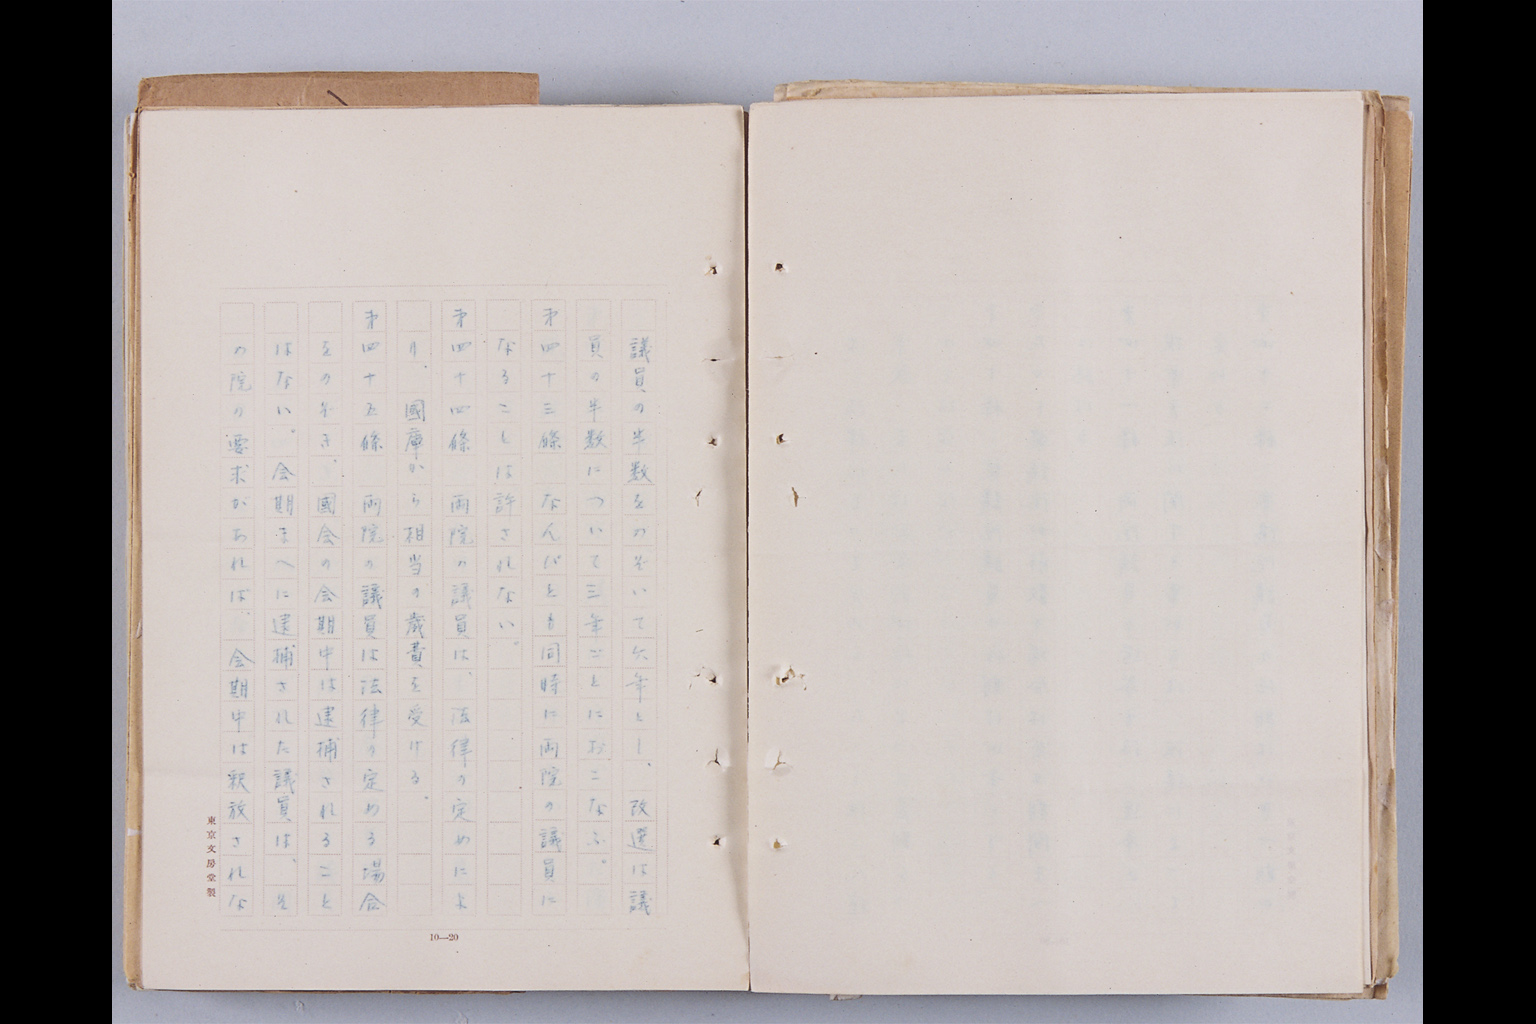 議員の半数をのぞいて六年とし、改選は議
員の半数について三年ごとにおこなふ。
第四十三條　なんぴとも同時に両院の議員に
なることは許されない。
第四十四條　両院の議員は、法律の定めによ
り、國庫から相当の歳費を受ける。
第四十五條　両院の議員は法律の定める場合
をのぞき、國会の会期中は逮捕されること
はない。会期まへに逮捕された議員は、そ
の院の要求があれば、会期中は釈放されな
東京文房堂製
10—20